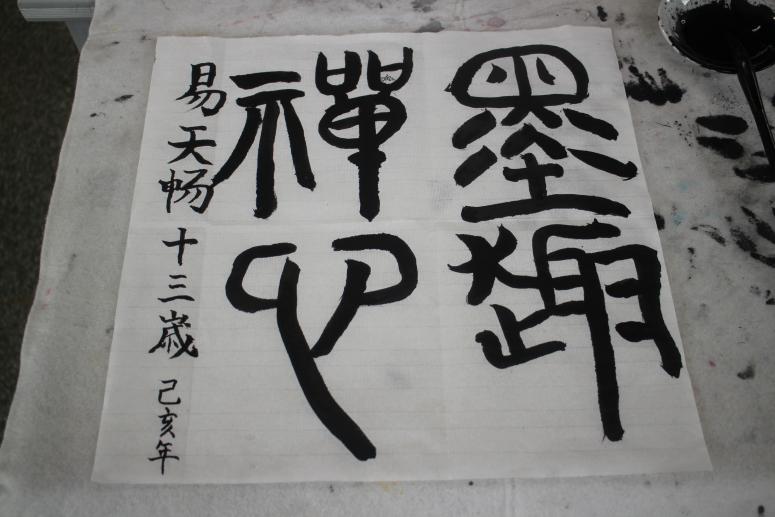 墨趣
禪心
易天畅 十三歲 己亥年